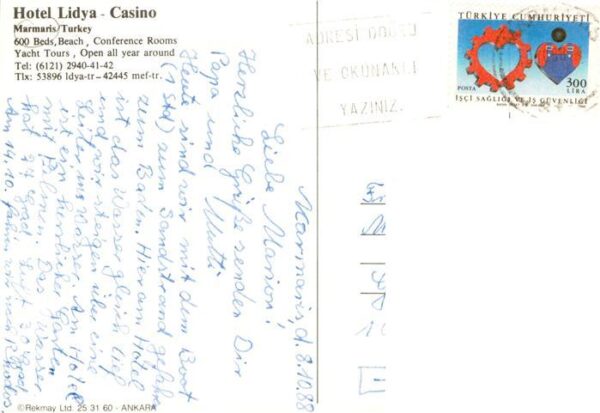 Hotel Lidya - Casino
Marmaris/Turkey
600 Beds, Beach, Conference Rooms
Yacht Tours, Open all year around
Tel: (6121) 2940-41-42
Tlx: 53896 ldya-tr-42445 mef-tr.
ADRESİ DOĞRU
VE OKUNAKLI
YAZINIZ.
TÜRKİYE CUMHURİYETİ
300
LİRA
POSTA
İŞÇİ SAĞLIĞI VE İŞ GÜVENLİĞİ
Marmaris, d. 8.10.88
Liebe Marion!
Herzliche Grüße senden Dir
Papa und Mutti
Heut sind wir mit dem Boot
(1 Std) zum Sandstrand gefahren
zum Baden. Hier am Hotel
ist das Wasser gleich tief
und wir steigen über eine
Leiter ins Wasser. Am Hotel
ist ein herrlicher Garten
mit Palmen. Das Wasser
hat 24 Grad, Luft 30 Grad
Am 14.10. fahren wir nach Rhodos
©Rekmay Ltd. 25 31 60 - ANKARA